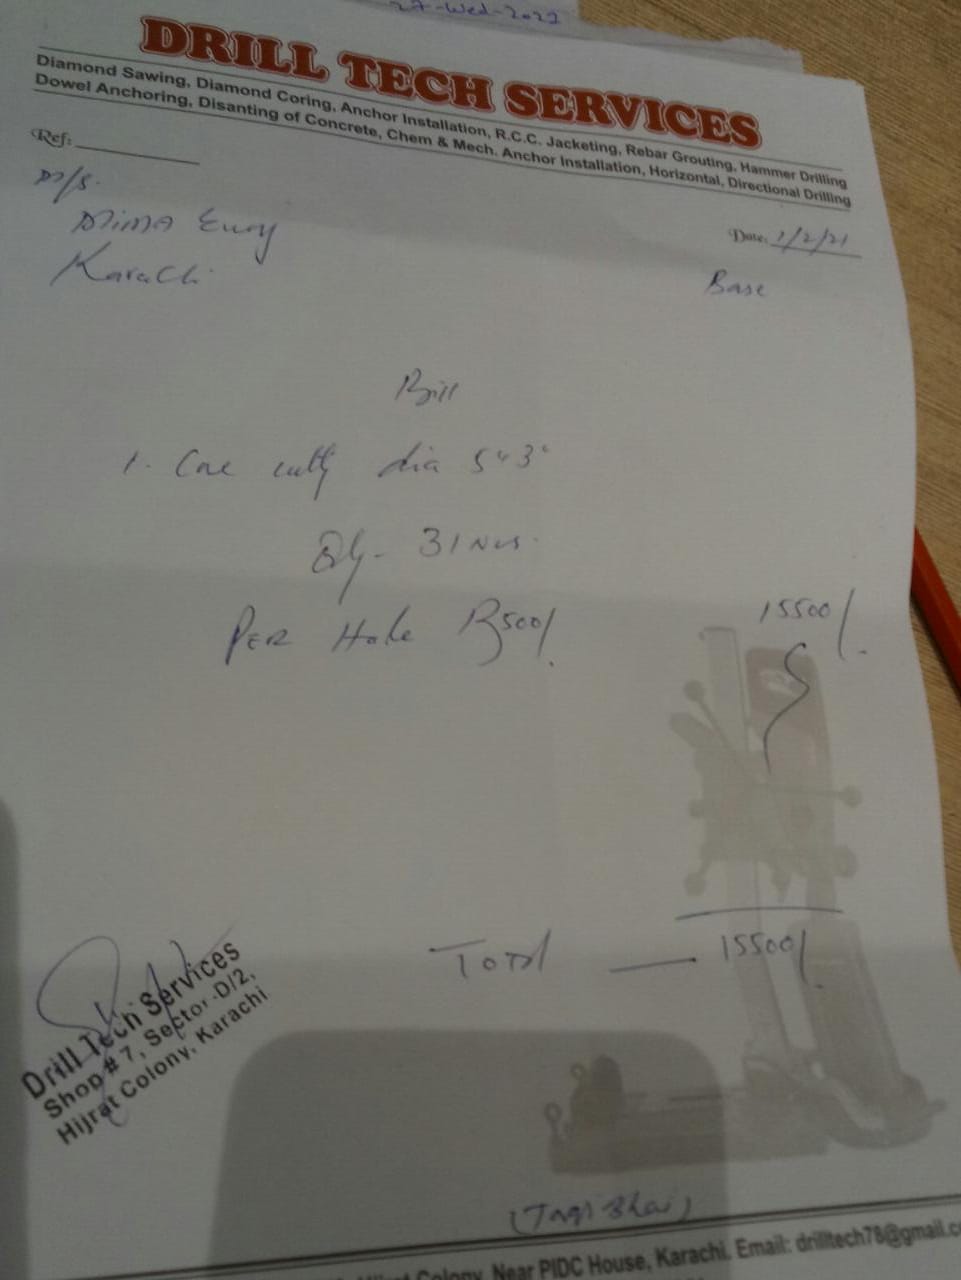 27-Wed-2022
DRILL TECH SERVICES
Diamond Sawing, Diamond Coring, Anchor Installation, R.C.C. Jacketing, Rebar Grouting, Hammer Drilling
Dowel Anchoring, Disanting of Concrete, Chem & Mech. Anchor Installation, Horizontal, Directional Drilling
Ref:
M/s.
Date: 1/2/21
Karachi
Base
Bill
1. Core cutting dia 5"3"
Qty- 31 Nos.
PER Hole Rs500/.
15500/.
Total — 15500/.
Drill Tech Services
Shop # 7, Sector-D/2,
Hijrat Colony, Karachi
(Taqi Bhai)
Colony, Near PIDC House, Karachi. Email: drilltech78@gmail.c